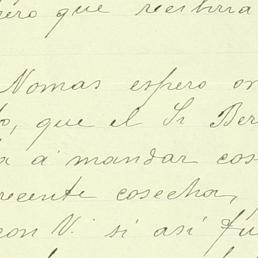 pero que recibirá
Nomas espero or
o, que el Sr Ber
a á mandar cos
recente cosecha,
con V. si así fu